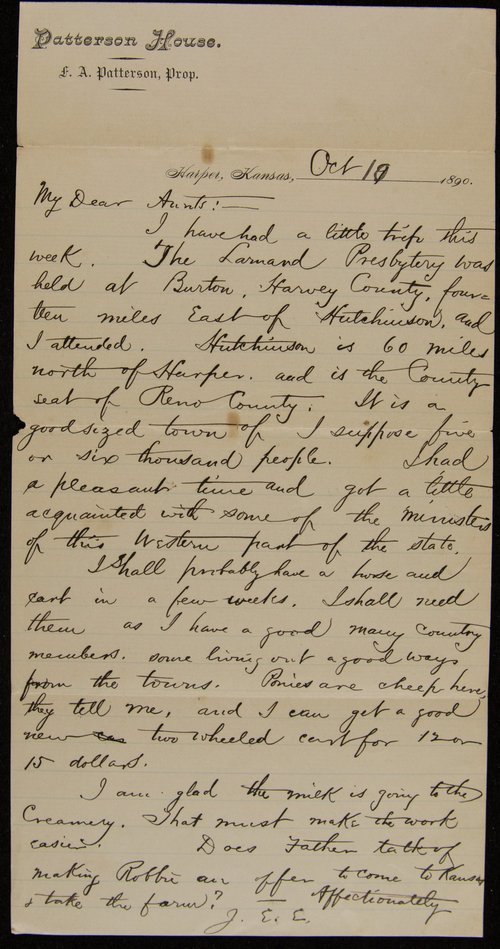 Patterson House.
F. A. Patterson, Prop.
Harper, Kansas, Oct 19 1890.
My Dear Aunts: —
I have had a little trip this
week. The Larnand Presbytery was
held at Burton, Harvey County, four=
teen miles East of Hutchinson, and
I attended. Hutchinson is 60 miles
north of Harper. and is the County
seat of Reno County. It is a
good sized town of I suppose five
or six thousand people. I had
a pleasant time and got a little
acquainted with some of the ministers
of this Western part of the state.
I shall probably have a horse and
cart in a few weeks. I shall need
them as I have a good many country
members. some living out a good ways
from the towns. Ponies are cheap here,
they tell me, and I can get a good
new two wheeled cart for 12 or
15 dollars.
I am glad the milk is going to the
Creamery. That must make the work
easier. Does Father talk of
making Robbie an offer to come to Kansas
& take the farm? Affectionately
J. E. E.